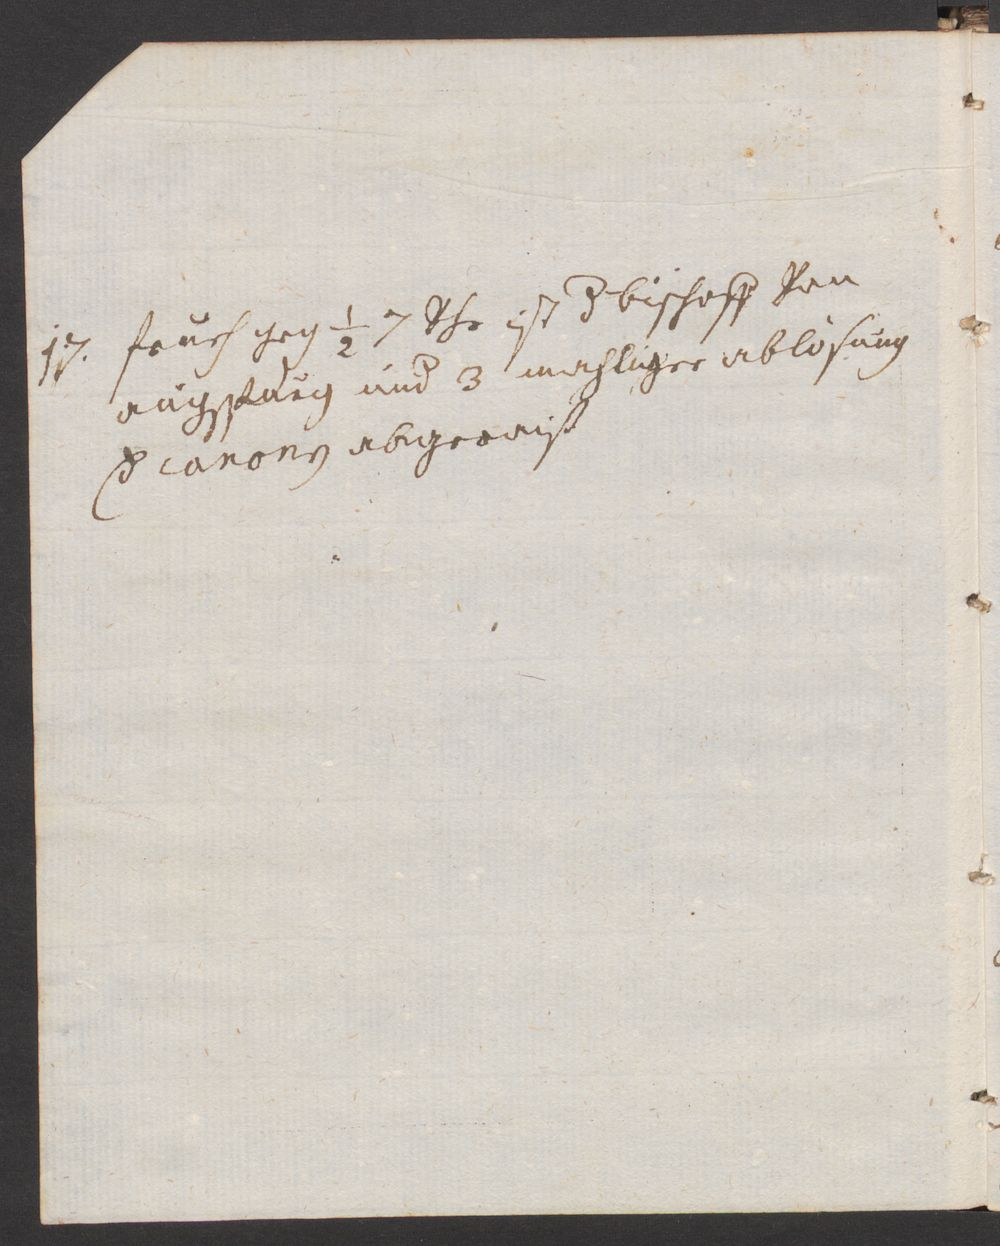 17. fruech gegen 1/2 7 Uhr ist d bischoff Von
augspurg und 3 mahliger ablösung
d canonen abgereist